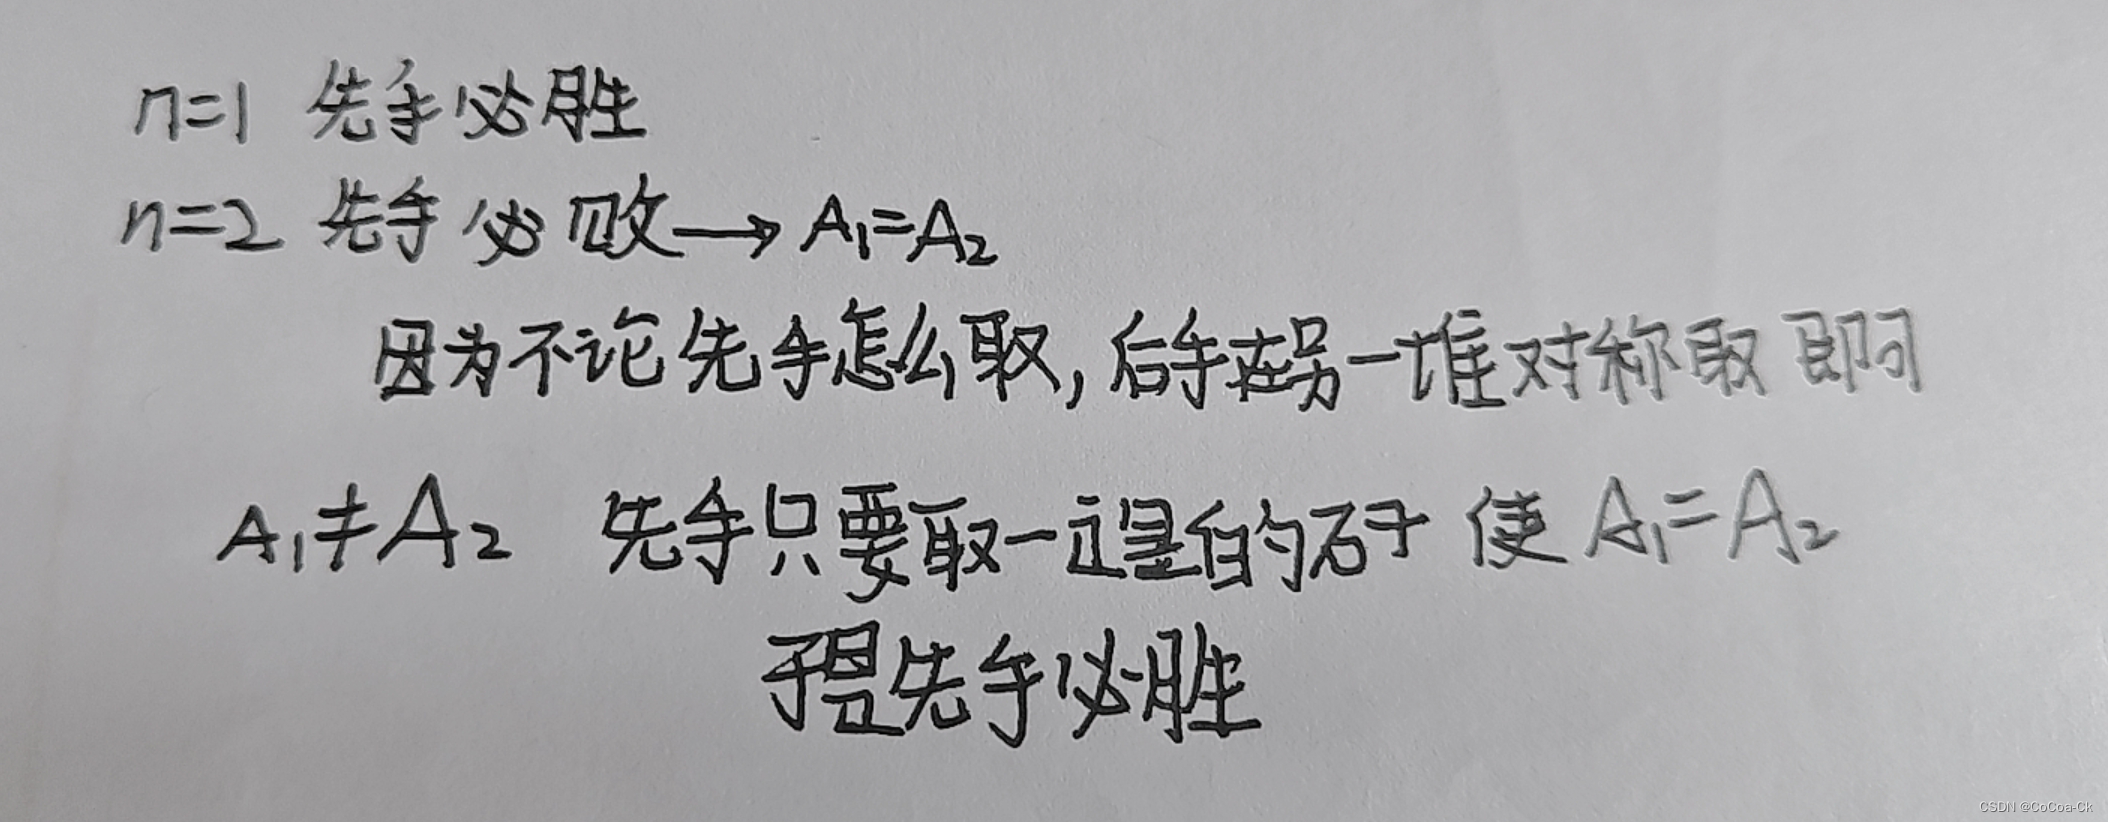 n=1 先手必胜
n=2 先手必败→A₁=A₂
因为不论先手怎么取,后手在另一堆对称取即可
A₁≠A₂ 先手只要取一定量的石子 使A₁=A₂
于是先手必胜
CSDN @CoCoa-Ck